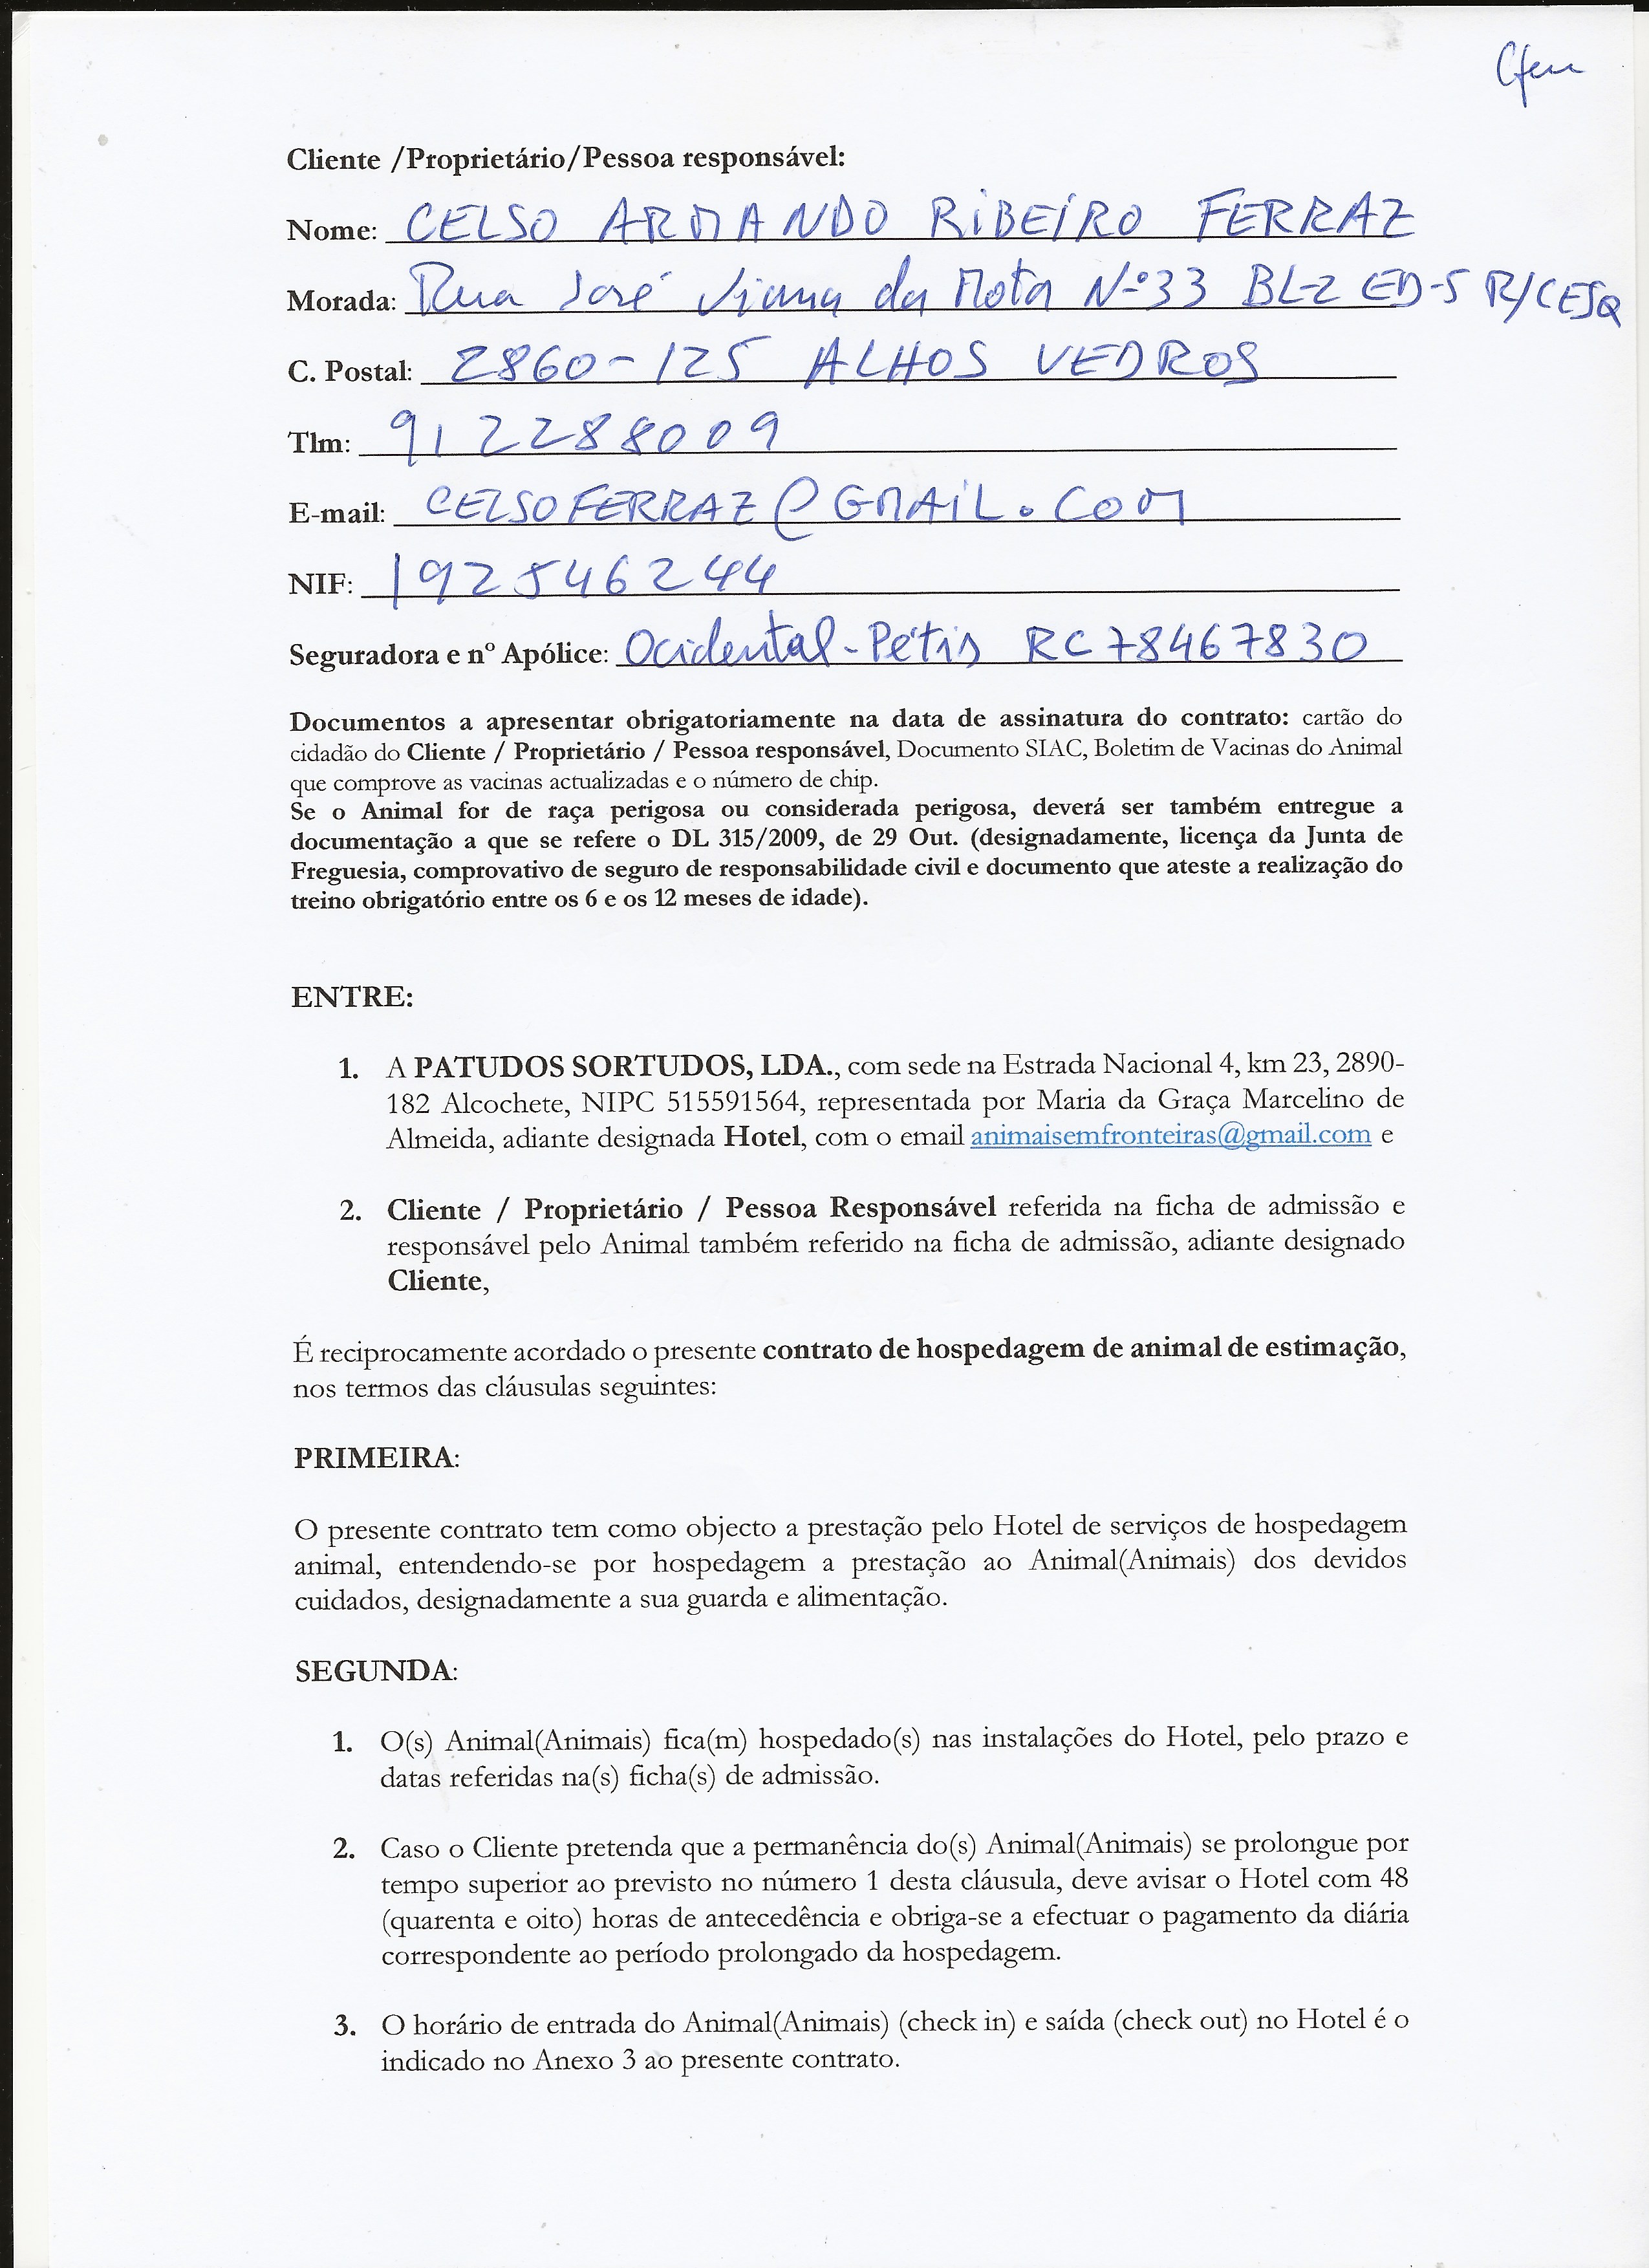 Cliente /Proprietário/Pessoa responsável:
Nome: CELSO ARMANDO RIBEIRO FERRAZ
Morada: Rua José Viana da Mota Nº33 BL-2 ED-5 R/CESQ
C. Postal: 2860-125 ALHOS VEDROS
Tlm: 912288009
E-mail: CELSOFERRAZ@GMAIL.COM
NIF: 192546244
Seguradora e nº Apólice: Ocidental-Pétis RC78467830
Documentos a apresentar obrigatoriamente na data de assinatura do contrato: cartão do
cidadão do Cliente / Proprietário / Pessoa responsável, Documento SIAC, Boletim de Vacinas do Animal
que comprove as vacinas actualizadas e o número de chip.
Se o Animal for de raça perigosa ou considerada perigosa, deverá ser também entregue a
documentação a que se refere o DL 315/2009, de 29 Out. (designadamente, licença da Junta de
Freguesia, comprovativo de seguro de responsabilidade civil e documento que ateste a realização do
treino obrigatório entre os 6 e os 12 meses de idade).
ENTRE:
1. A PATUDOS SORTUDOS, LDA., com sede na Estrada Nacional 4, km 23, 2890-
182 Alcochete, NIPC 515591564, representada por Maria da Graça Marcelino de
Almeida, adiante designada Hotel, com o email animaisemfronteiras@gmail.com e
2. Cliente / Proprietário / Pessoa Responsável referida na ficha de admissão e
responsável pelo Animal também referido na ficha de admissão, adiante designado
Cliente,
É reciprocamente acordado o presente contrato de hospedagem de animal de estimação,
nos termos das cláusulas seguintes:
PRIMEIRA:
O presente contrato tem como objecto a prestação pelo Hotel de serviços de hospedagem
animal, entendendo-se por hospedagem a prestação ao Animal(Animais) dos devidos
cuidados, designadamente a sua guarda e alimentação.
SEGUNDA:
1. O(s) Animal(Animais) fica(m) hospedado(s) nas instalações do Hotel, pelo prazo e
datas referidas na(s) ficha(s) de admissão.
2. Caso o Cliente pretenda que a permanência do(s) Animal(Animais) se prolongue por
tempo superior ao previsto no número 1 desta cláusula, deve avisar o Hotel com 48
(quarenta e oito) horas de antecedência e obriga-se a efectuar o pagamento da diária
correspondente ao período prolongado da hospedagem.
3. O horário de entrada do Animal(Animais) (check in) e saída (check out) no Hotel é o
indicado no Anexo 3 ao presente contrato.